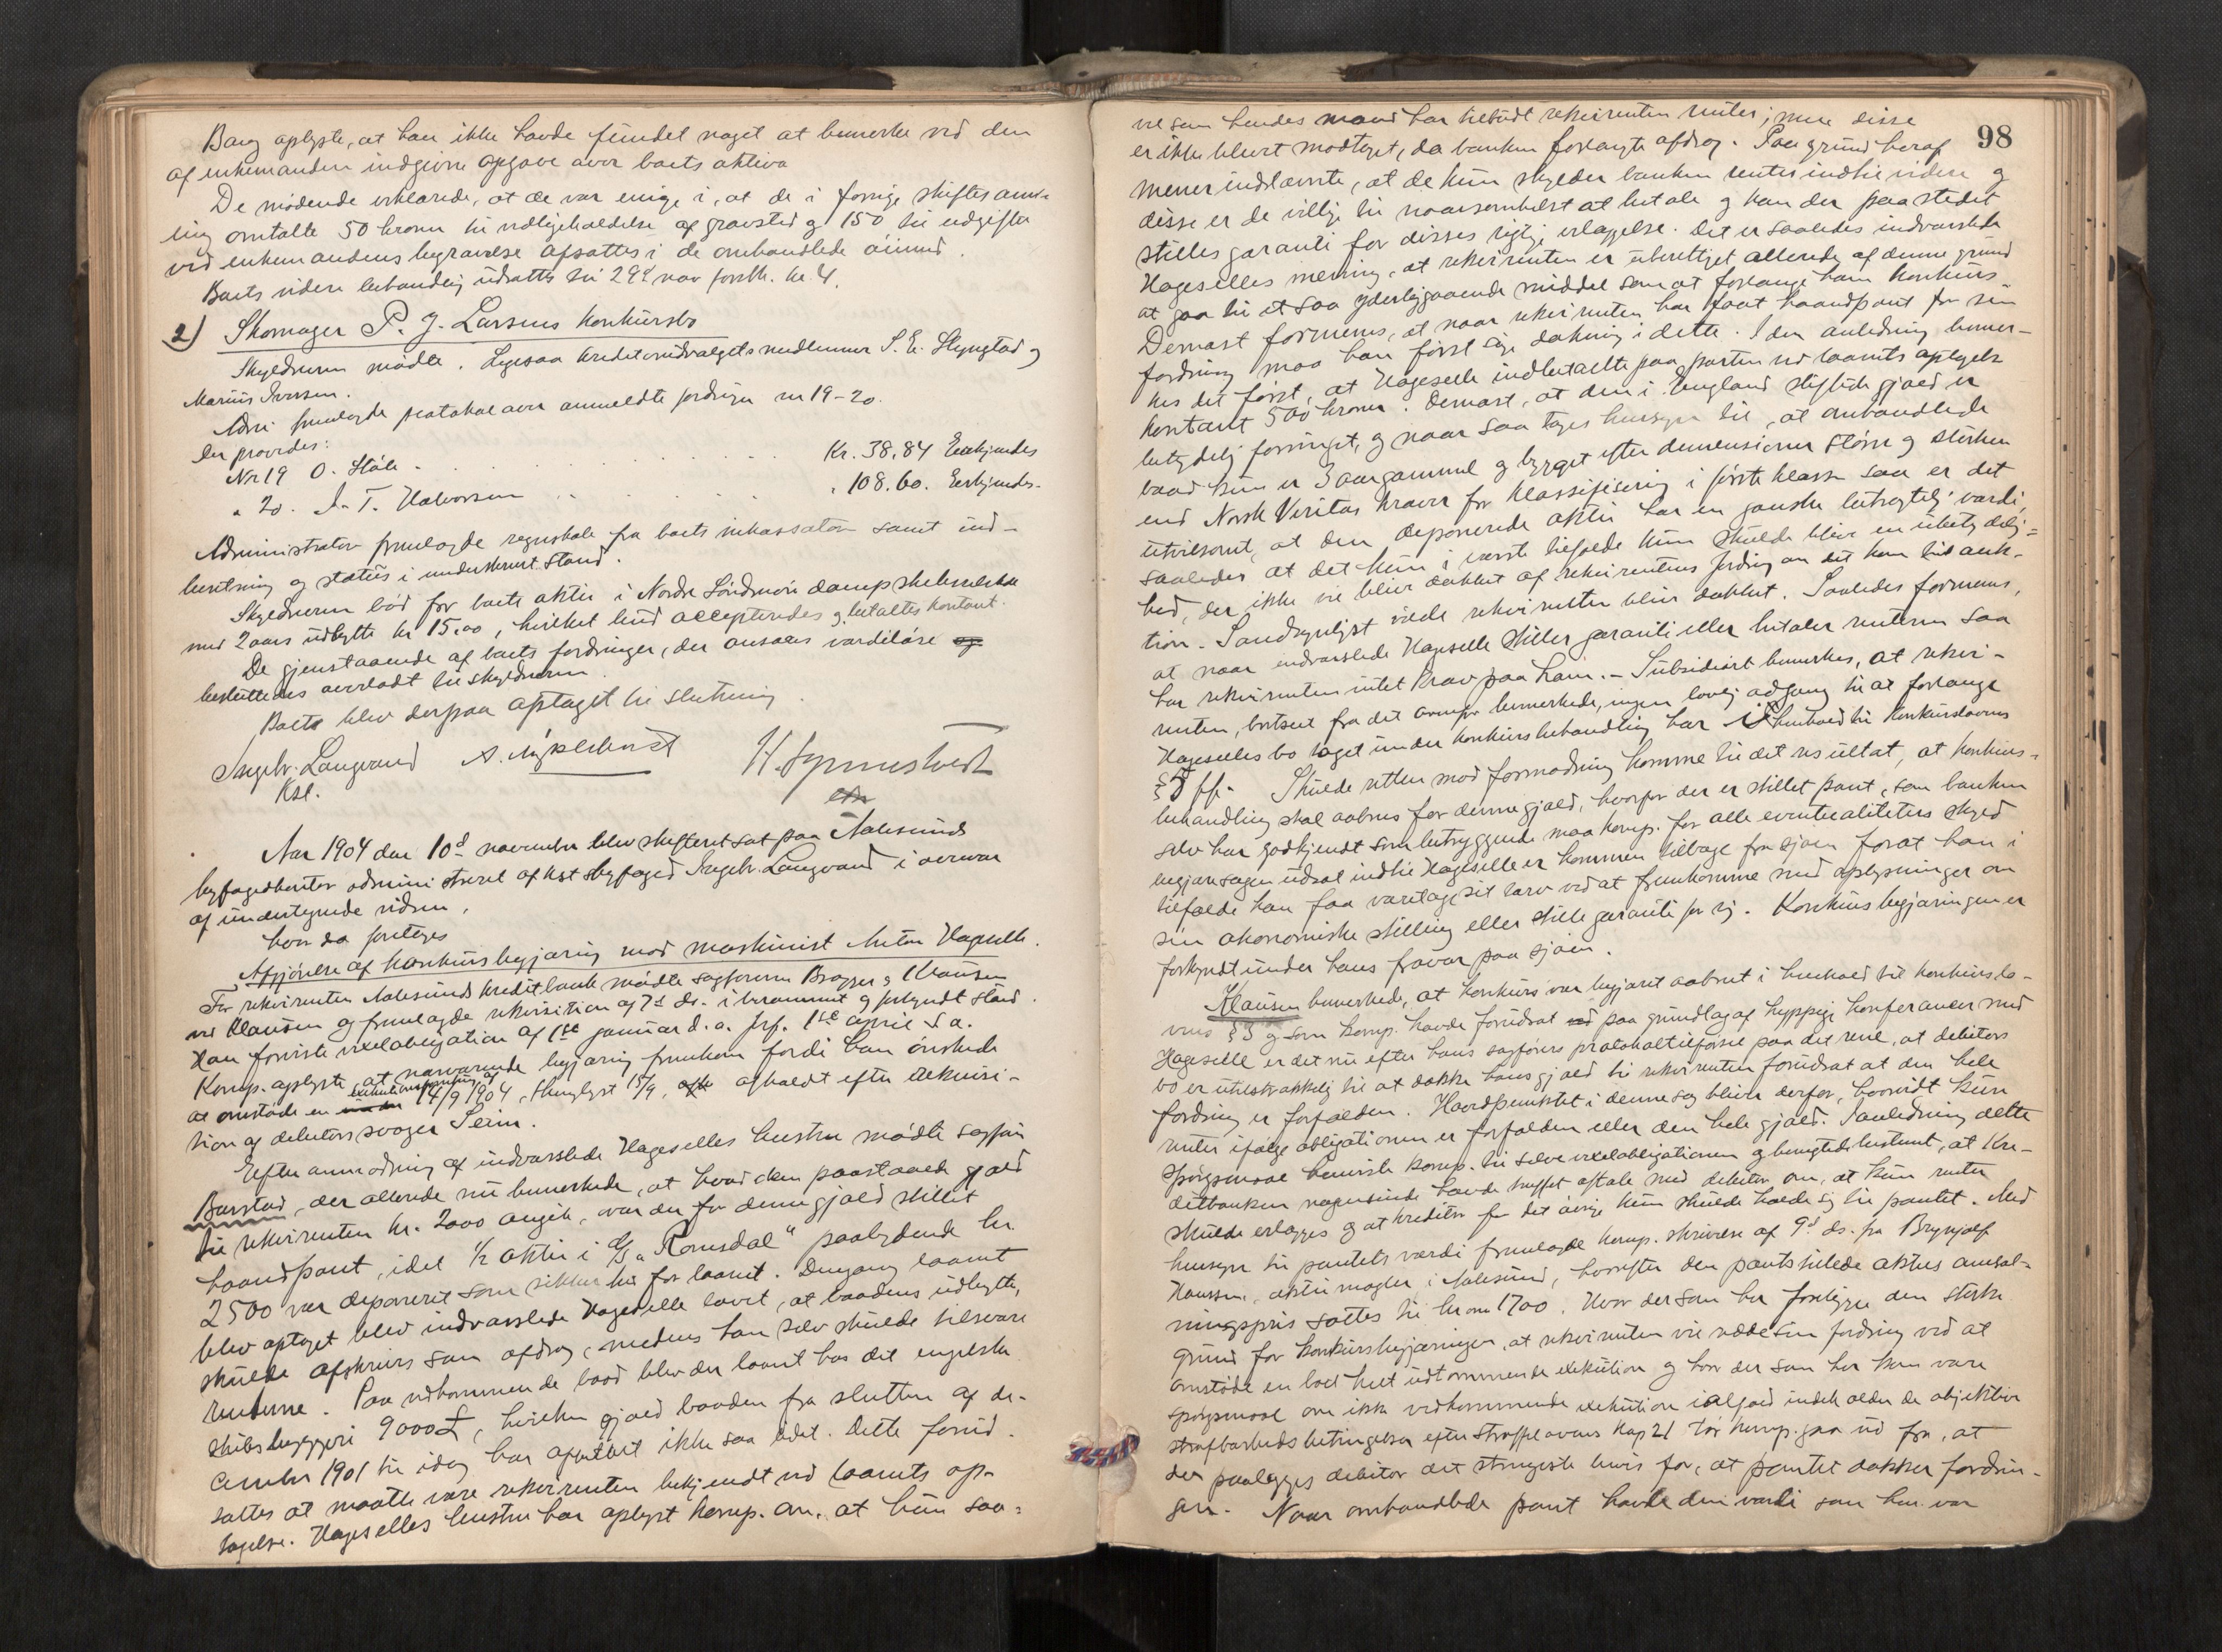 Bang oplyste, at han ikke havde fundet noget at bemerke ved den
af enkemanden indgivne opgave over boets aktiva
De mødende erklærede, at de var enige i, at de i forrige skiftesam-
ling omtalte 50 kroner til vedligeholdelse af gravsted og 150 til udgifter
ved enkemandens begravelse afsattes i de omhandlede øiemed.
Boets videre behandling udsattes til 29de nov førstk. kl. 4.
2) Skomager P. J. Larsens konkursbo
Skyldneren mødte. Ligesaa kreditorudvalgets medlemmer S. E. Slyngstad og
Marius Iversen.
Adm. fremlagde protokol over anmeldte fordringer nr 19-20.
Der prøvedes:
Nr 19 O. Ståle Kr. 38,84 Erkjendes
" 20. J. T. Halvorsen " 108.60. Erkjendes.
Administrator fremlagde regnskab fra boets inkassator samt ind-
beretning og status i underskrevet stand.
Skyldneren bød for boets aktie i Nordre Søndmøre dampskibsselskab
med 2 aars udbytte kr 15,00, hvilket bud accepteredes og betaltes kontant.
De gjenstaaende af boets fordringer, der ansaaes værdiløse og
besluttedes overladt til skyldneren.
Boets blev derpaa optaget til slutning.
Ingebr. Langeland
Kst.
H. Synnestvedt
Aar 1904 den 10d november blev skifteret sat paa Aalesunds
byfogedkontor administreret af kst byfoged Ingebr. Langeland i overvær
af undertegnede vidner,
hvor da foretoges
Afgjørelse af konkursbegjæring mod maskinist Anton Hageselle.
For rekvirenten Aalesunds kreditbank mødte sagførerne Brøgger & Klausen
ved Klausen og fremlagde rekvisition af 7d ds. i berammet og forkyndt stand.
Han foreviste vexelobligation af 1ste januar d. a. jvf. 1ste april d. a.
Komp. oplyste at nærværende begjæring fremkom fordi han ønskede
at omstøde en under exekutionsforretning af 14/9 1904, thinglyst 15/9, afholdt efter rekvisi-
tion af debitors svoger Seim.
Efter anmodning af indvarslede Hageselles hustru mødte sagfører
Barstad, der allerede nu bemerkede, at hvad den paastaaede gjæld
til rekvirenten kr. 2000 angik, var der for denne gjæld stillet
haandpant, idet 1/2 aktie i A/S "Romsdal" paalydende kr
2500 var deponeret som sikkerhed for laanet. Dengang laanet
blev optaget blev indvarslede Hageselle lovet, at baadens udbytte,
skulde afskrives som afdrag, medens han selv skulde tilsvare
renterne. Paa vedkommende baad blev der laant hos det engelske
skibsbyggeri 9000 £, hvilken gjæld baaden fra slutten af de-
cember 1901 til idag har afbetalt ikke saa lidet. Dette forud-
sattes at maatte være rekvirenten bekjendt ved laanets op-
tagelse. Hageselles hustru har oplyst komp. om, at hun saa-
98
vel som hendes mand har tilbudt rekvirenten renter; men disse
er ikke blevet modtaget, da banken forlangte afdrag. Paa grund heraf
mener indstevnte, at de kun skylder banken renter indtil videre og
disse er de villige til naarsomhelst at betale og kan der paa stedet
stilles garanti for disses rigtige erlæggelse. Det er saaledes indvarslede
Hageselles mening, at rekvirenten er uberettiget allerede af denne grund
at gaa til et saa yderliggaaende middel som at forlange ham konkurs.
Dernæst formenes, at naar rekvirenten har faaet haandpant for sin
fordring maa han først søge dækning i dette. I den anledning bemer-
kes det først, at Hageselle indbetalte paa parten ved laanets optagelse
kontant 500 kroner. Dernæst, at den i England stiftede gjæld er
betydelig formindsket, og naar saa tages hensyn til, at omhandlede
baad kun er 3 aar gammel og bygget efter dimensioner større og sterkere
end Norsk Veritas kræver for klassifisering i første klasse saa er det
utvilsomt, at den deponerede aktie har en ganske betragtelig værdi,
saaledes at det kun i værste tilfælde kun skulde blive en ubetydelig-
hed, der ikke vil blive dækket af rekvirentens fordring om det kom til auk-
tion. Sandsynligst vilde rekvirenten blive dækket. Saaledes formenes,
at naar indvarslede Hageselle stiller garanti eller betaler renterne saa
har rekvirenten intet krav paa ham. – Subsidiært bemerkes, at rekvi-
renten, bortseet fra det ovenfor bemerkede, ingen lovlig adgang til at forlange
Hageselles bo taget under konkursbehandling har i henhold til konkurslovens
§ 3 ff. Skulde retten mod formodning komme til det resultat, at konkurs-
behandling skal aabnes for denne gjæld, hvorfor der er stillet pant, som banken
selv har godkjendt som betryggende maa komp. for alle eventualiteters skyld
begjære sagen udsat indtil Hageselle er kommen tilbage fra sjøen forat han i
tilfælde kan faa varetaget sit tarv ved at fremkomme med oplysninger om
sin økonomiske stilling eller stille garanti for sig. Konkursbegjæringen er
forkyndt under hans fravær paa sjøen.
Klausen bemerkede, at konkurs var begjæret aabnet i henhold til konkurslo-
vens § 3 og som komp. havde forudsat ved paa grundlag af hyppige konferancer med
Hageselle er det nu efter hans sagførers protokoltilførsel paa det rene, at debitors
bo er utilstrækkelig til at dække hans gjæld til rekvirenten forudsat at den hele
fordring er forfalden. Hovedpunktet i denne sag bliver derfor, hvorvidt kun
renter ifølge obligationen er forfalden eller den hele gjæld. I anledning dette
spørgsmaal henviste komp. til selve vexelobligationen og benegtede bestemt, at Kre-
ditbanken nogensinde havde truffet aftale med debitor om, at kun renter
skulde erlægges og at kreditor for det øvrige kun skulde holde sig til pantet. Med
hensyn til pantets værdi fremlagde komp. skrivelse af 9d ds. fra Brynjulf
Hanssen, aktiemægler i Aalesund, hvorefter den pantstillede akties antal-
ningspris sattes til kroner 1700. Hvor der som her foreligger den sterke
grund for konkursbegjæringen, at rekvirenten vil redde sin fordring ved at
omstøde en boet helt udtømmende exekution og hvor der som her kan være
spørgsmaal om ikke vedkommende exekution ialfald indeholder de objektive
strafbarhedsbetingelser efter straffelovens Kap 21 tør komp. gaa ud fra, at
der paalægges debitor det strengeste bevis for, at pantet dækker fordrin-
gen. Naar omhandlede pant havde den værdi som her var